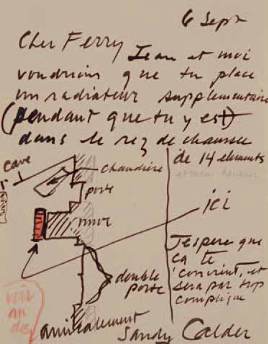 6 Sept
Cher Ferry Jean et moi
voudrions que tu place
un radiateur supplementaire
(pendant que tu y est)
dans le rez de chaussee
de 14 elements
cave
chaudière
porte
mur
ici
double
porte
J'espere que
ça te
convient, et
sera pas trop
compliqué
voir
au dos
amicalement
Sandy Calder